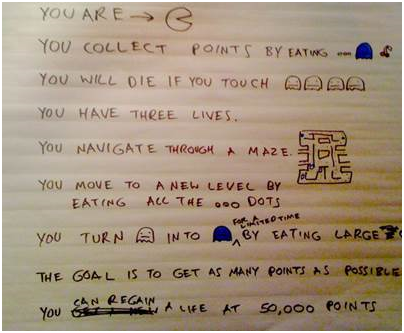 YOU ARE →
YOU COLLECT POINTS BY EATING
YOU WILL DIE IF YOU TOUCH
YOU HAVE THREE LIVES.
YOU NAVIGATE THROUGH A MAZE.
YOU MOVE TO A NEW LEVEL BY
EATING ALL THE DOTS
YOU TURN INTO FOR LIMITED TIME BY EATING LARGE
THE GOAL IS TO GET AS MANY POINTS AS POSSIBLE
YOU CAN REGAIN A LIFE AT 50,000 POINTS